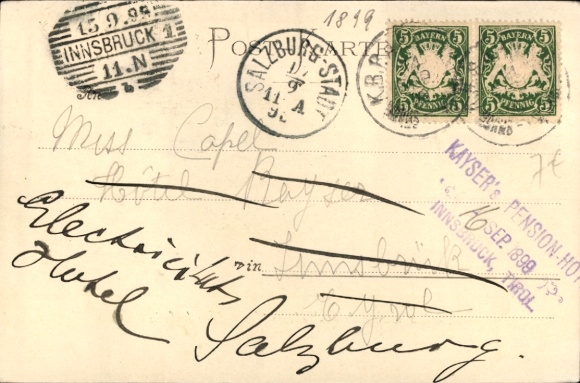 1899
POSTKARTE
15.9.99
INNSBRUCK 1
11.N
SALZBURG-STADT
9
11 A
BAYERN
5 5
PFENNIG
BAYERN
5 5
PFENNIG
K.B.
Miss Capel
Hôtel Kayser
in Innsbruck
Tyrol
7€
KAYSER'S PENSION-HOT
16 SEP. 1899
INNSBRUCK, TIROL.
Electricitäts
Hotel Salzburg.